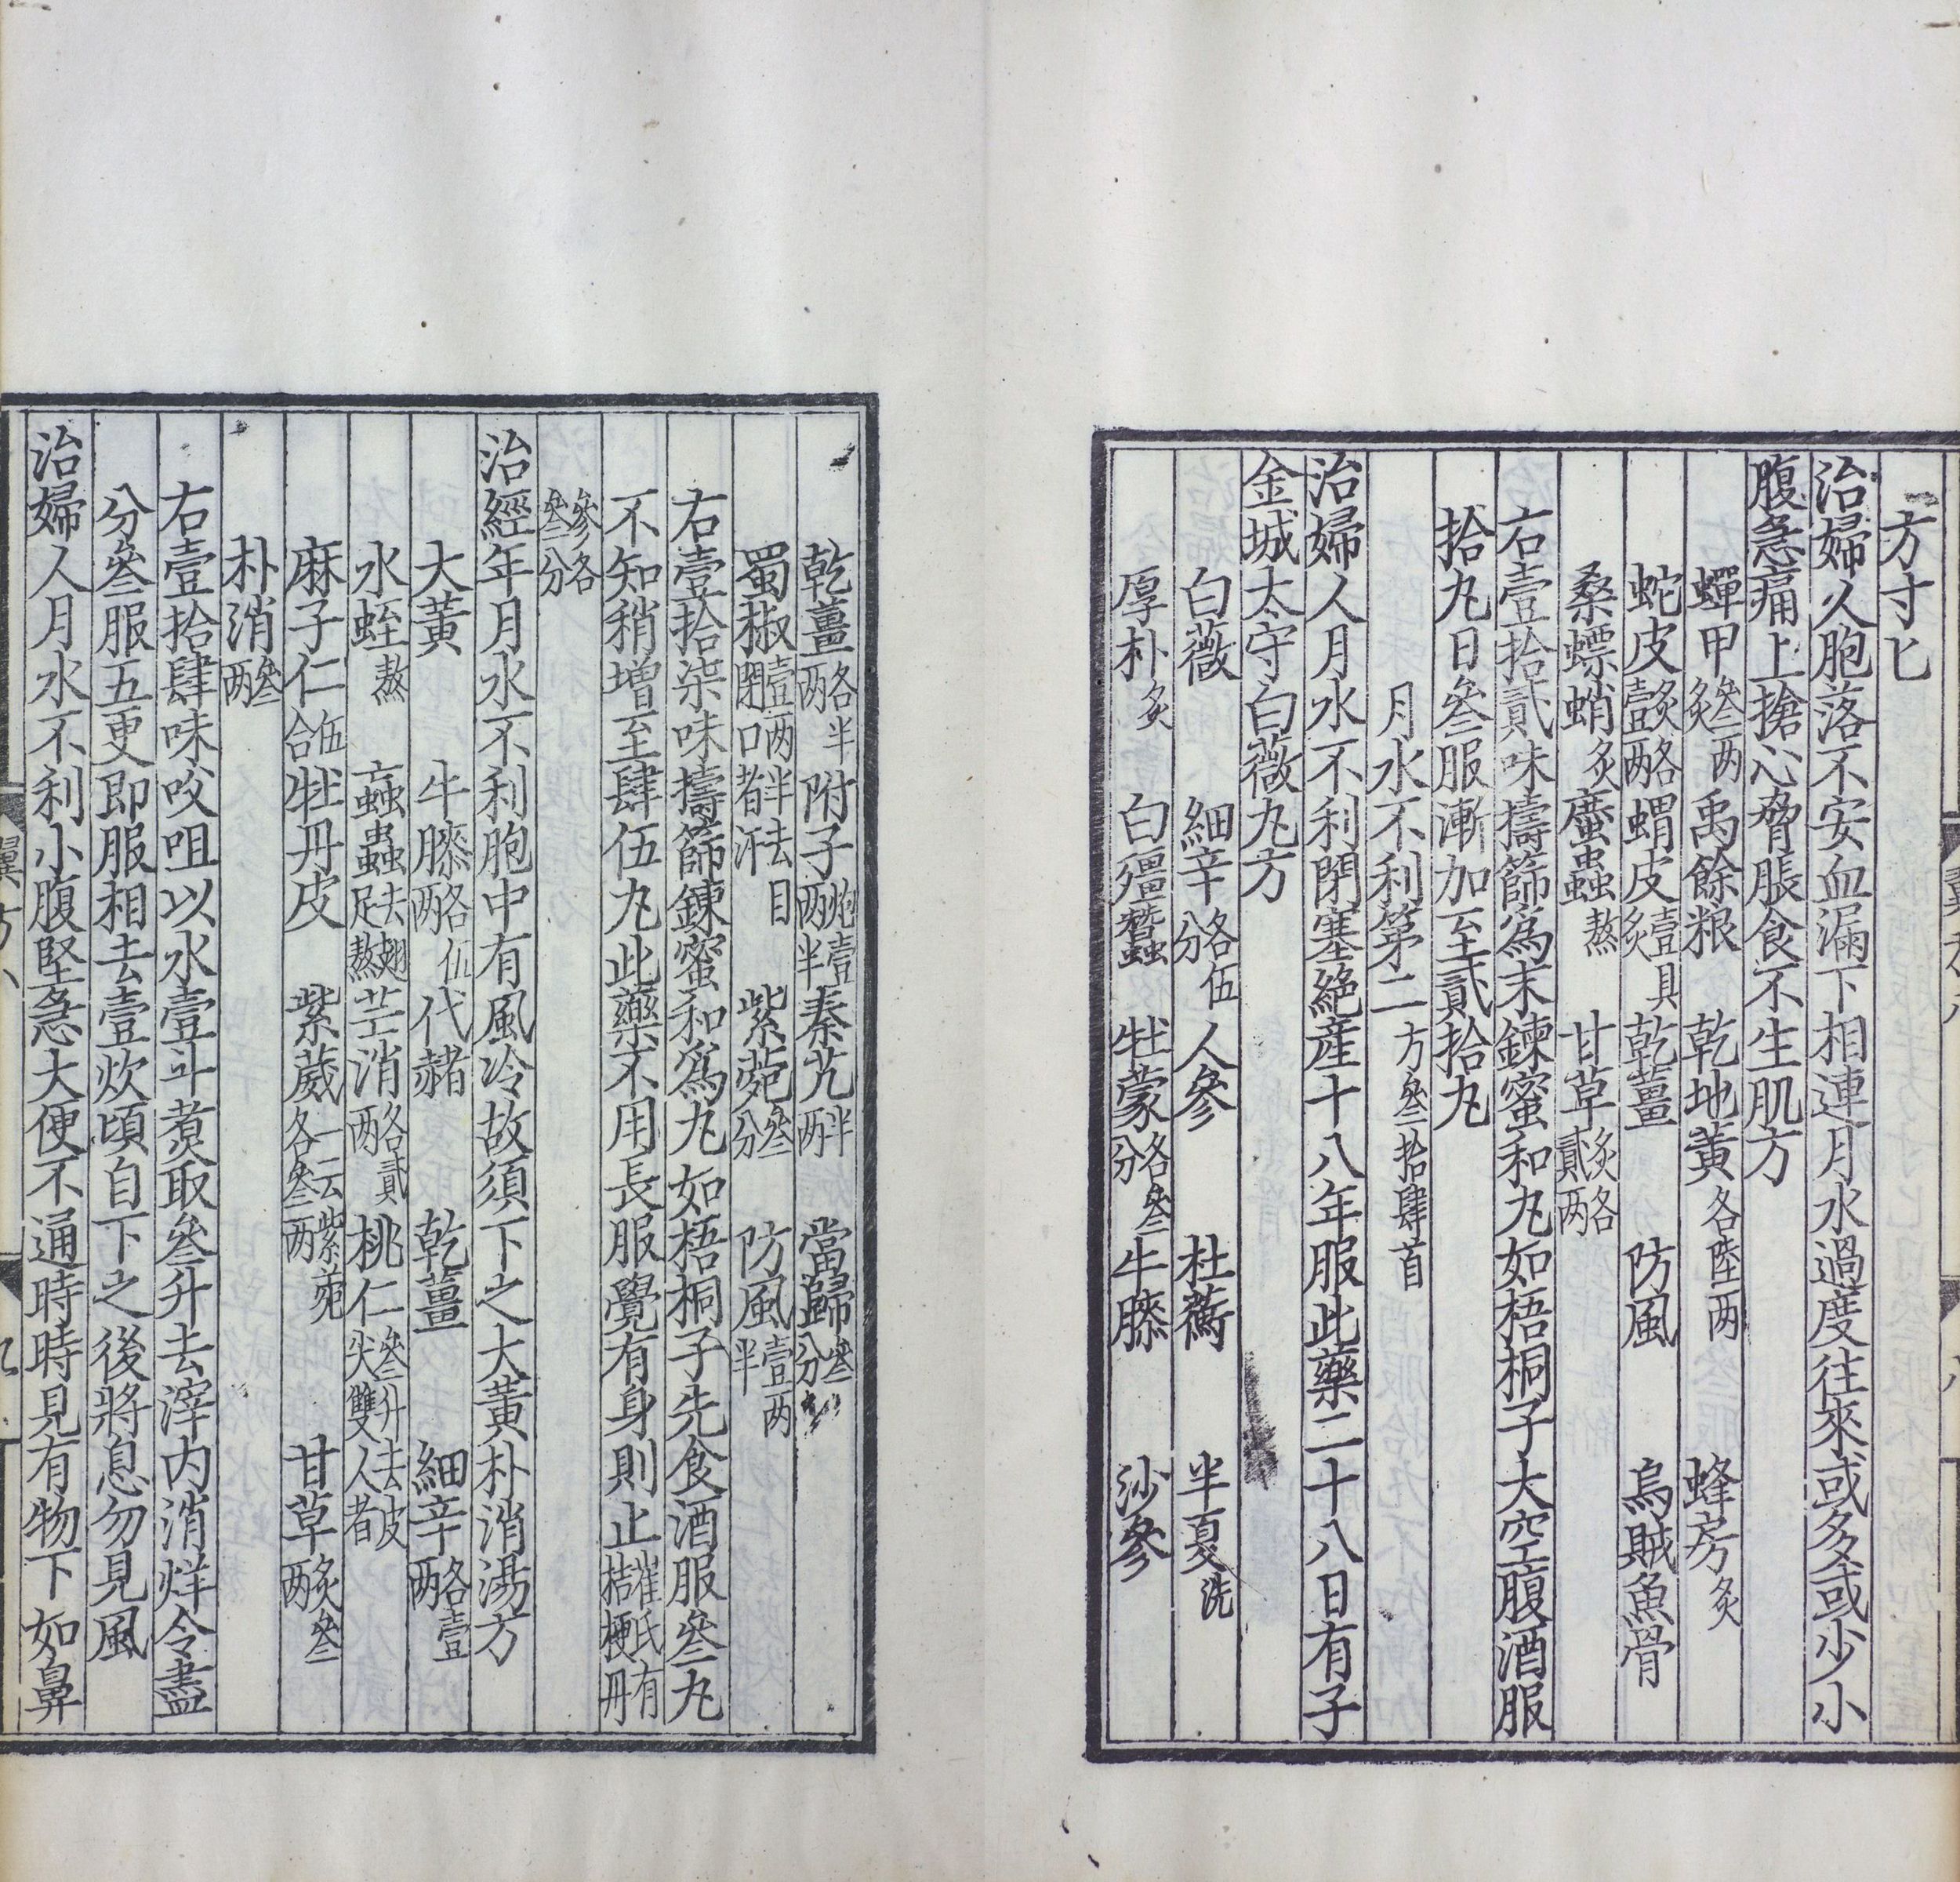 方寸匕
治婦人胞落不安血漏下相連月水過度往來或多或少小
腹急痛上搶心脅脹食不生肌方
蟬甲炙叁两 禹餘粮 乾地黃各陸两 蜂房炙
蛇皮炙各壹两 蝟皮壹具炙 乾薑 防風 烏賊魚骨
桑螵蛸炙 䗪蟲熬 甘草炙各貳两
右壹拾貳味擣篩爲末鍊蜜和丸如梧桐子大空腹酒服
拾丸日叁服漸加至貳拾丸
月水不利第二方叁拾肆首
治婦人月水不利閉塞絕産十八年服此藥二十八日有子
金城太守白薇丸方
白薇 細辛各伍分 人參 杜蘅 半夏洗
厚朴炙 白殭蠶 牡蒙各叁分 牛膝 沙參
乾薑各半两 附子炮壹两半 秦艽半两 當歸叁分
蜀椒壹两半去目閉口者汗 紫菀叁分 防風壹两半
右壹拾柒味擣篩鍊蜜和爲丸如梧桐子先食酒服叁丸
不知稍增至肆伍丸此藥不用長服覺有身則止崔氏有桔梗丹
參各叁分
治經年月水不利胞中有風冷故須下之大黃朴消湯方
大黃 牛膝各伍两 代赭 乾薑 細辛各壹两
水蛭熬 蝱蟲去翅足熬 芒消各貳两 桃仁叁升去皮尖雙人者
麻子仁伍合 牡丹皮 紫葳一云紫菀各叁两 甘草炙叁两
朴消叁两
右壹拾肆味㕮咀以水壹斗煑取叁升去滓内消烊令盡
分叁服五更即服相去壹炊頃自下之後將息勿見風
治婦人月水不利小腹堅急大便不通時時見有物下如鼻